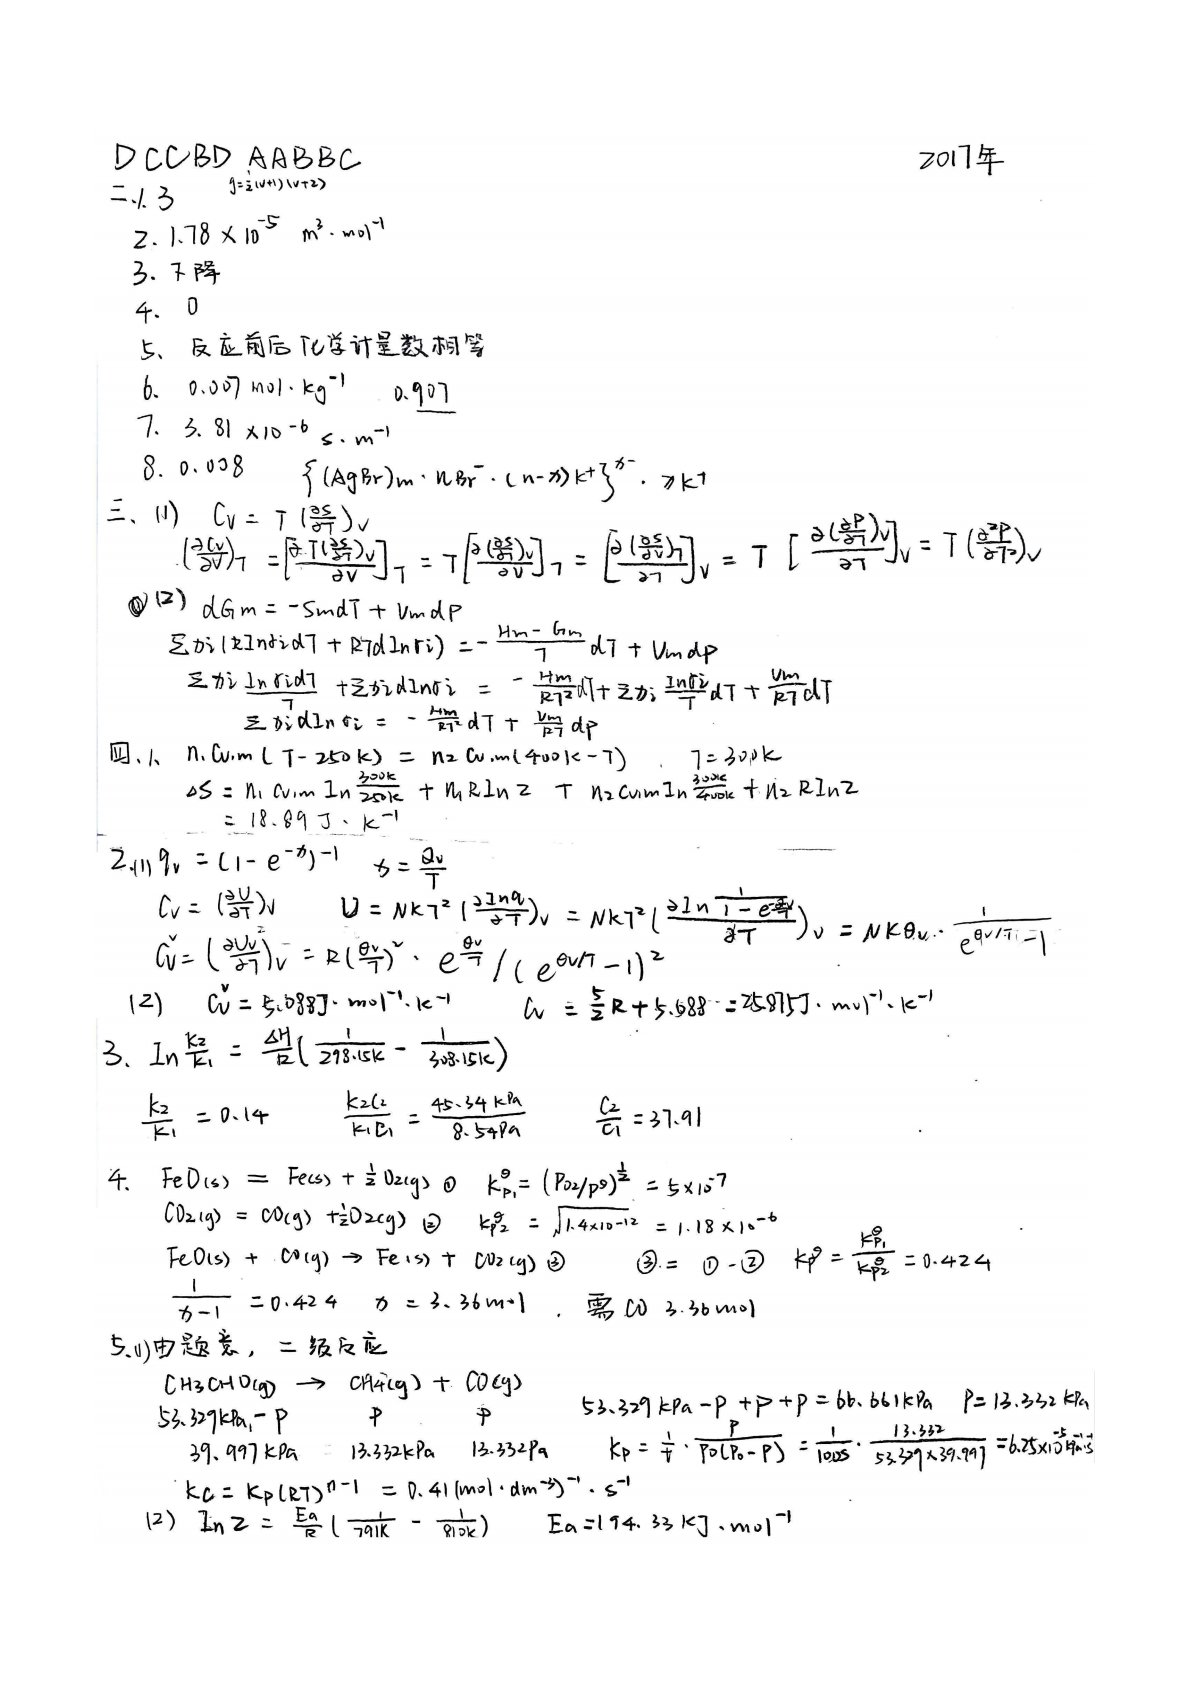 DCCBD AABBC 2017年
g=½(v+1)(v+2)
二.1. 3
2. 1.78×10⁻⁵ m³·mol⁻¹
3. 下降
4. 0
5、反应前后化学计量数相等
6. 0.007 mol·kg⁻¹ 0.907
7. 3.81×10⁻⁶ S·m⁻¹
8. 0.038 {(AgBr)m·nBr⁻·(n-x)K⁺}ˣ⁻·xK⁺
三、(1) Cv = T(∂S/∂T)v
(∂Cv/∂V)T = [∂T(∂S/∂T)v/∂V]T = T[∂(∂S/∂T)v/∂V]T = [∂(∂S/∂V)T/∂T]v = T[∂(∂P/∂T)v/∂T]v = T(∂²P/∂T²)v
(2) dGm = -SmdT + Vmdp
Σxi(RlnridT + RTdlnri) = -(Hm-Gm)/T dT + Vmdp
Σxi lnridT/T + Σxidlnri = -Hm/RT² dT + Σxi lnri/T dT + Vm/RT dT
Σxidlnri = -Hm/RT² dT + Vm/RT dp
四.1、n₁Cv.m(T-250K) = n₂Cv.m(400K-T) . T=300K
ΔS = n₁Cv,m ln 300K/250K + n₁Rln2 + n₂Cv,m ln 300K/400K + n₂Rln2
= 18.89 J·K⁻¹
2.(1) qv = (1-e⁻ˣ)⁻¹ x = Θv/T
Cv = (∂U/∂T)v U = NkT²(∂lnq/∂T)v = NkT²(∂ln 1/(1-e^(-θv/T))/∂T)v = Nkθv· 1/(e^(θv/T)-1)
Cvᵛ = (∂Uv/∂T)v = R(θv/T)²·e^(θv/T)/(e^(θv/T)-1)²
(2) Cvᵛ = 5.088J·mol⁻¹·K⁻¹ Cv = 5/2 R + 5.088 = 25.875J·mol⁻¹·K⁻¹
3. ln K₂/K₁ = ΔH/R(1/298.15K - 1/308.15K)
K₂/K₁ = 0.14 K₂C₂/K₁C₁ = 45.34kPa/8.54Pa C₂/C₁ = 37.91
4. FeO(s) = Fe(s) + ½O₂(g) ① Kᶿp₁ = (Po₂/pᶿ)^½ = 5×10⁻⁷
CO₂(g) = CO(g) + ½O₂(g) ② Kᶿp₂ = √1.4×10⁻¹² = 1.18×10⁻⁶
FeO(s) + CO(g) → Fe(s) + CO₂(g) ③ ③ = ①-② Kpᶿ = Kᶿp₁/Kᶿp₂ = 0.424
1/(x-1) = 0.424 x = 3.36mol . 需CO 3.36mol
5.(1)由题意，二级反应
CH₃CHO(g) → CH₄(g) + CO(g)
53.329kPa-P P P 53.329kPa-P+P+P = 66.661kPa P=13.332kPa
39.997kPa 13.332kPa 13.332Pa Kp = 1/T · P/P₀(P₀-P) = 1/1005 · 13.332/53.329×39.997 = 6.25×10⁻⁵kPa⁻¹·s⁻¹
Kc = Kp(RT)ⁿ⁻¹ = 0.41(mol·dm⁻³)⁻¹·s⁻¹
(2) ln2 = Ea/R(1/791K - 1/810K) Ea = 194.33KJ·mol⁻¹